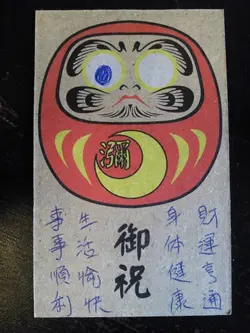 彌
御祝
財運亨通
身体健康
生活愉快
事事順利